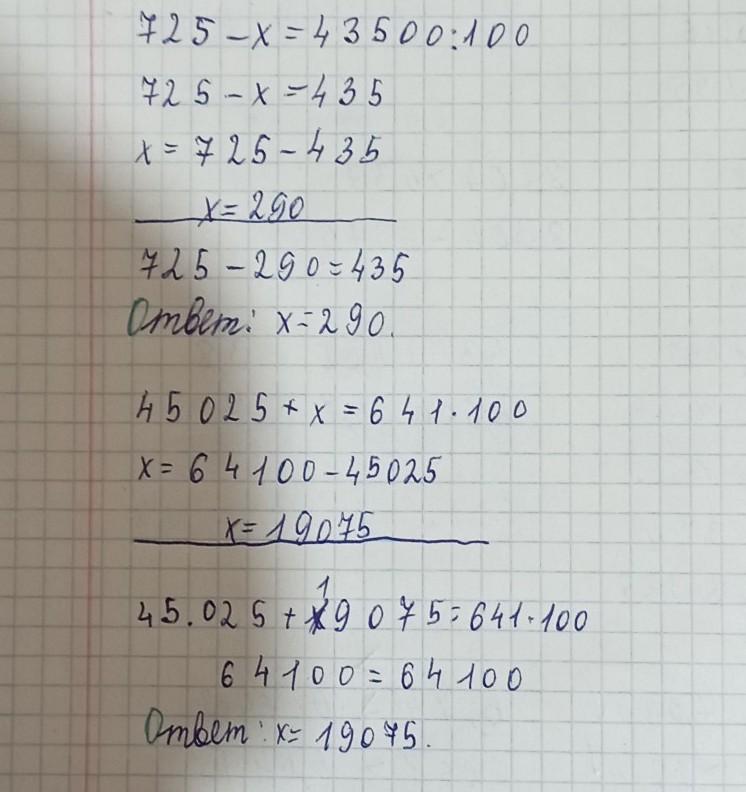 725 - x = 43500:100
725 - x = 435
x = 725 - 435
x = 290
725 - 290 = 435
Ответ: x = 290.
45025 + x = 641·100
x = 64100 - 45025
x = 19075
45.025 + 19075 = 641·100
64100 = 64100
Ответ: x = 19075.